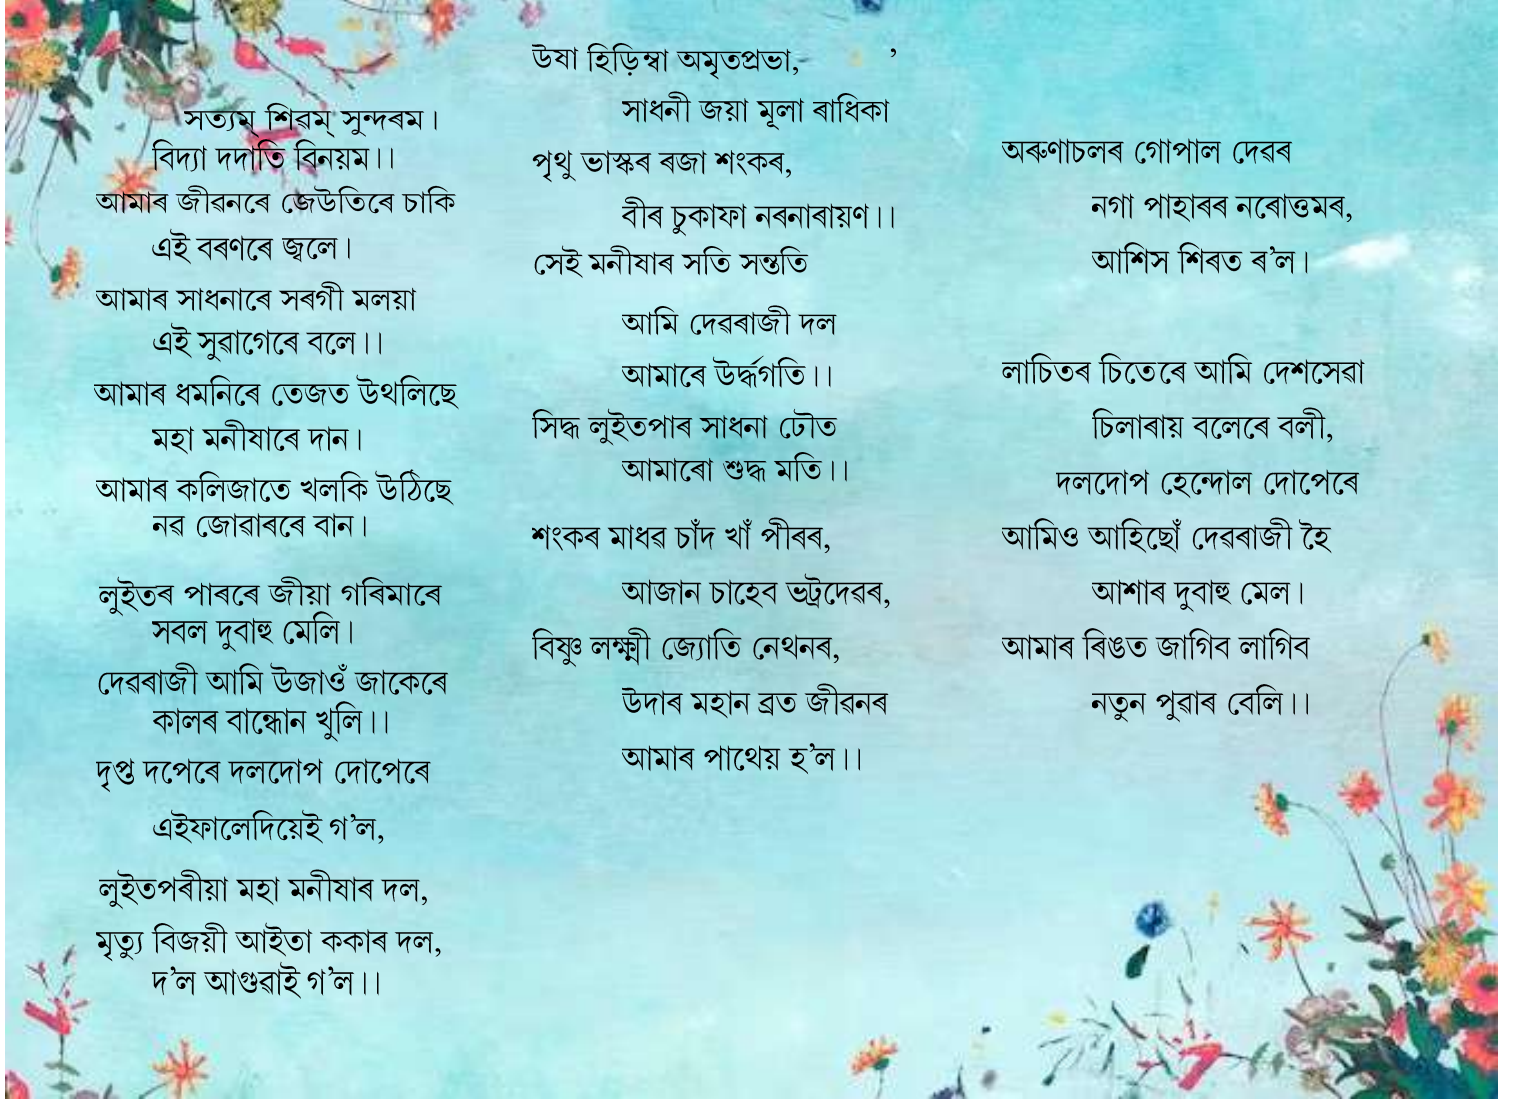 সত্যম্ শিৱম্ সুন্দৰম।
বিদ্যা দদাতি বিনয়ম।।
আমাৰ জীৱনৰে জেউতিৰে চাকি
এই বৰণৰে জ্বলে।
আমাৰ সাধনাৰে সৰগী মলয়া
এই সুৱাগেৰে বলে।।
আমাৰ ধমনিৰে তেজত উথলিছে
মহা মনীষাৰে দান।
আমাৰ কলিজাতে খলকি উঠিছে
নৱ জোৱাৰৰে বান।
লুইতৰ পাৰৰে জীয়া গৰিমাৰে
সবল দুবাহু মেলি।
দেৱৰাজী আমি উজাওঁ জাকেৰে
কালৰ বান্ধোন খুলি।।
দৃপ্ত দপেৰে দলদোপ দোপেৰে
এইফালেদিয়েই গ’ল,
লুইতপৰীয়া মহা মনীষাৰ দল,
মৃত্যু বিজয়ী আইতা ককাৰ দল,
দ’ল আগুৱাই গ’ল।।
উষা হিড়িম্বা অমৃতপ্ৰভা, ’
সাধনী জয়া মূলা ৰাধিকা
পৃথু ভাস্কৰ ৰজা শংকৰ,
বীৰ চুকাফা নৰনাৰায়ণ।।
সেই মনীষাৰ সতি সন্ততি
আমি দেৱৰাজী দল
আমাৰে উৰ্দ্ধগতি।।
সিদ্ধ লুইতপাৰ সাধনা ঢৌত
আমাৰো শুদ্ধ মতি।।
শংকৰ মাধৱ চাঁদ খাঁ পীৰৰ,
আজান চাহেব ভট্ৰদেৱৰ,
বিষ্ণু লক্ষ্মী জ্যোতি নেথনৰ,
উদাৰ মহান ব্ৰত জীৱনৰ
আমাৰ পাথেয় হ’ল।।
অৰুণাচলৰ গোপাল দেৱৰ
নগা পাহাৰৰ নৰোত্তমৰ,
আশিস শিৰত ৰ’ল।
লাচিতৰ চিতেৰে আমি দেশসেৱা
চিলাৰায় বলেৰে বলী,
দলদোপ হেন্দোল দোপেৰে
আমিও আহিছোঁ দেৱৰাজী হৈ
আশাৰ দুবাহু মেল।
আমাৰ ৰিঙত জাগিব লাগিব
নতুন পুৱাৰ বেলি।।